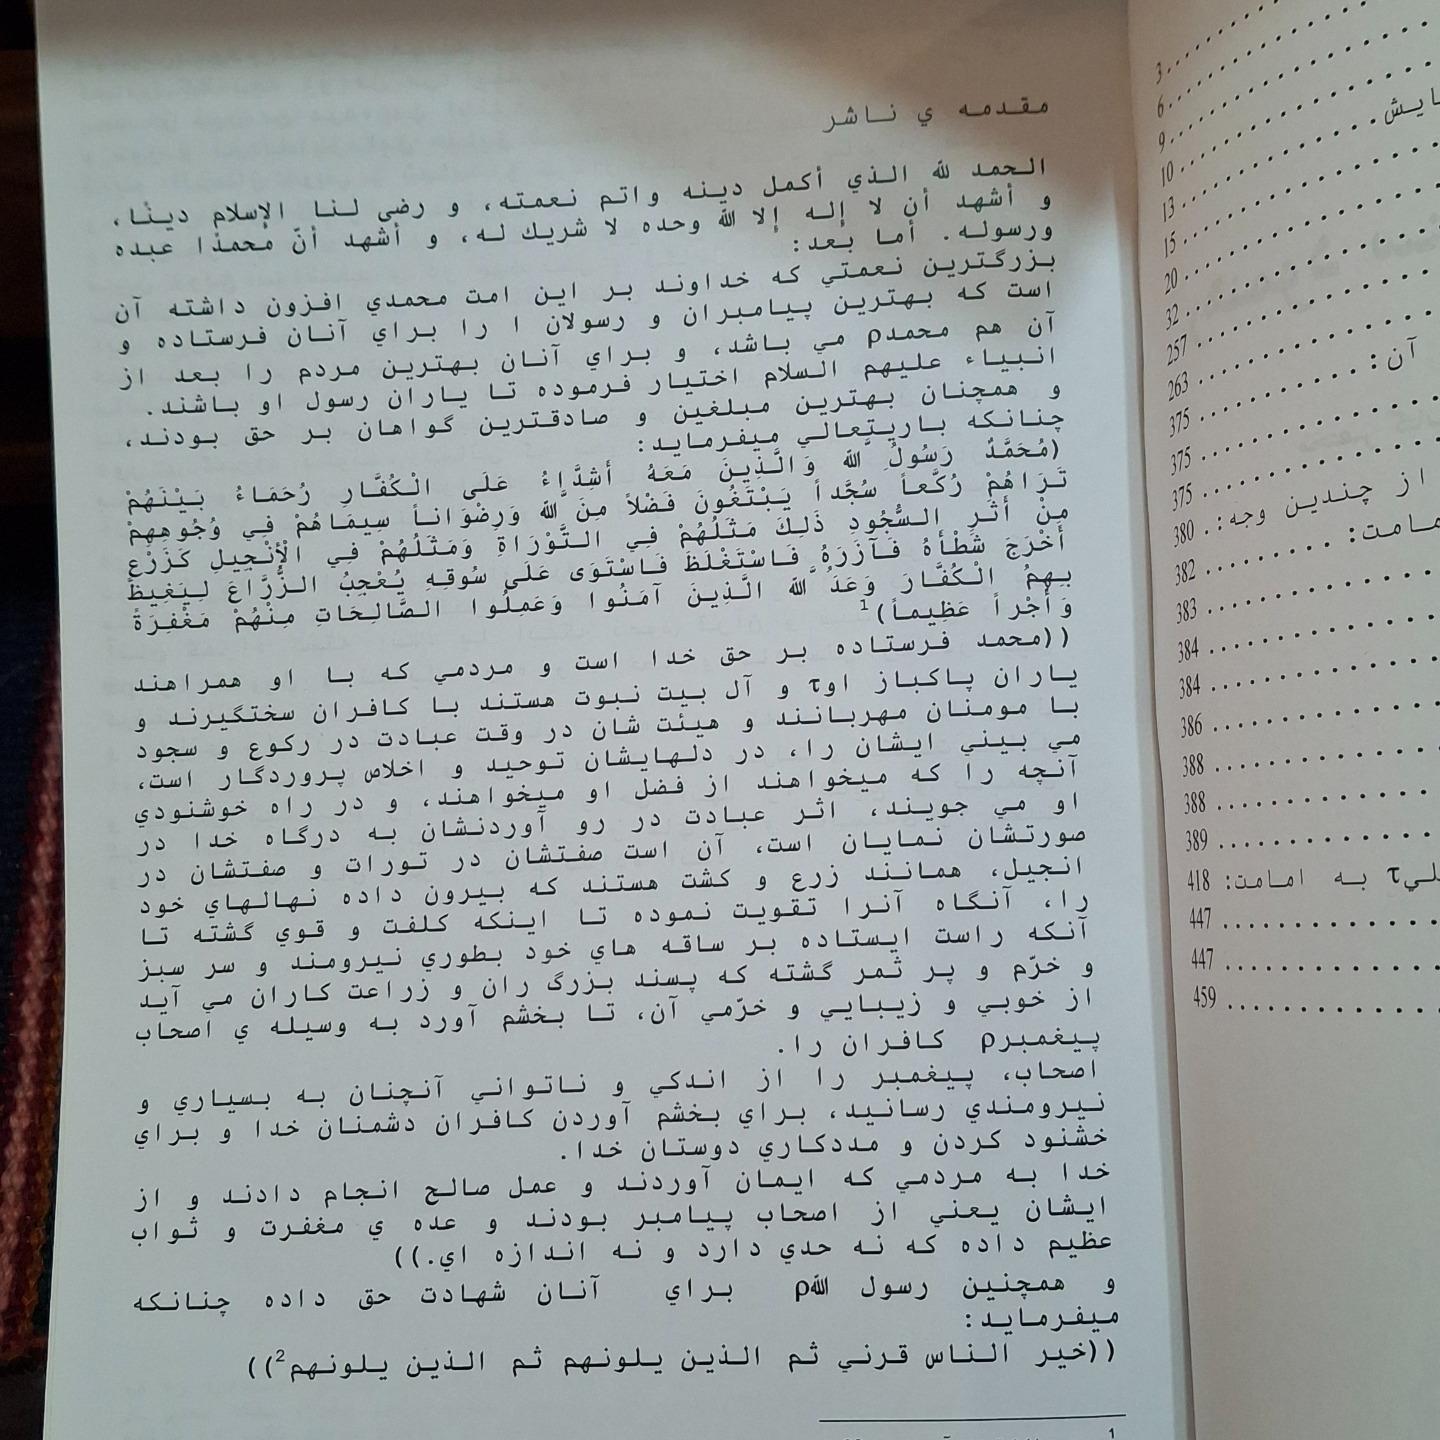 مقدمه ي ناشر
الحمد لله الذي أكمل دينه واتم نعمته، و رضى لنا الإسلام دينًا،
و أشهد أن لا إله إلا الله وحده لا شريك له، و أشهد أنّ محمدًا عبده
ورسوله. أما بعد:
بزرگترين نعمتي كه خداوند بر اين امت محمدي افزون داشته آن
است كه بهترين پيامبران و رسولان ا را براي آنان فرستاده و
آن هم محمدρ مي باشد، و براي آنان بهترين مردم را بعد از
انبياء عليهم السلام اختيار فرموده تا ياران رسول او باشند.
و همچنان بهترين مبلغين و صادقترين گواهان بر حق بودند،
چنانكه باريتعالي ميفرمايد:
(مُحَمَّدٌ رَسُولُ اللَّه وَالَّذِينَ مَعَهُ أَشِدَّاءُ عَلَى الْكُفَّارِ رُحَمَاءُ بَيْنَهُمْ
تَرَاهُمْ رُكَّعاً سُجَّداً يَبْتَغُونَ فَضْلاً مِنَ اللَّه وَرِضْوَاناً سِيمَاهُمْ فِي وُجُوهِهِمْ
مِنْ أَثَرِ السُّجُودِ ذَلِكَ مَثَلُهُمْ فِي التَّوْرَاةِ وَمَثَلُهُمْ فِي الْأِنْجِيلِ كَزَرْعٍ
أَخْرَجَ شَطْأَهُ فَآزَرَهُ فَاسْتَغْلَظَ فَاسْتَوَى عَلَى سُوقِهِ يُعْجِبُ الزُّرَّاعَ لِيَغِيظَ
بِهِمُ الْكُفَّارَ وَعَدَ اللَّه الَّذِينَ آمَنُوا وَعَمِلُوا الصَّالِحَاتِ مِنْهُمْ مَغْفِرَةً
وَأَجْراً عَظِيماً)1
((محمد فرستاده بر حق خدا است و مردمي كه با او همراهند
ياران پاكباز اوτ و آل بيت نبوت هستند با كافران سختگيرند و
با مومنان مهربانند و هيئت شان در وقت عبادت در ركوع و سجود
مي بيني ايشان را، در دلهايشان توحيد و اخلاص پروردگار است،
آنچه را كه ميخواهند از فضل او ميخواهند، و در راه خوشنودي
او مي جويند، اثر عبادت در رو آوردنشان به درگاه خدا در
صورتشان نمايان است، آن است صفتشان در تورات و صفتشان در
انجيل، همانند زرع و كشت هستند كه بيرون داده نهالهاي خود
را، آنگاه آنرا تقويت نموده تا اينكه كلفت و قوي گشته تا
آنكه راست ايستاده بر ساقه هاي خود بطوري نيرومند و سر سبز
و خرّم و پر ثمر گشته كه پسند بزرگ ران و زراعت كاران مي آيد
از خوبي و زيبايي و خرّمي آن، تا بخشم آورد به وسيله ي اصحاب
پيغمبرρ كافران را.
اصحاب، پيغمبر را از اندكي و ناتواني آنچنان به بسياري و
نيرومندي رسانيد، براي بخشم آوردن كافران دشمنان خدا و براي
خشنود كردن و مددكاري دوستان خدا.
خدا به مردمي كه ايمان آوردند و عمل صالح انجام دادند و از
ايشان يعني از اصحاب پيامبر بودند و عده ي مغفرت و ثواب
عظيم داده كه نه حدي دارد و نه اندازه اي.))
و همچنين رسول اللهρ براي آنان شهادت حق داده چنانكه
ميفرمايد:
((خير الناس قرني ثم الذين يلونهم ثم الذين يلونهم2))
1
3
6
9
ايش 10
13
15
20
32
257
263
آن: 375
375
375
از چندين وجه: 380
مامت: 382
383
384
384
386
388
388
389
ليτ به امامت: 418
447
447
459